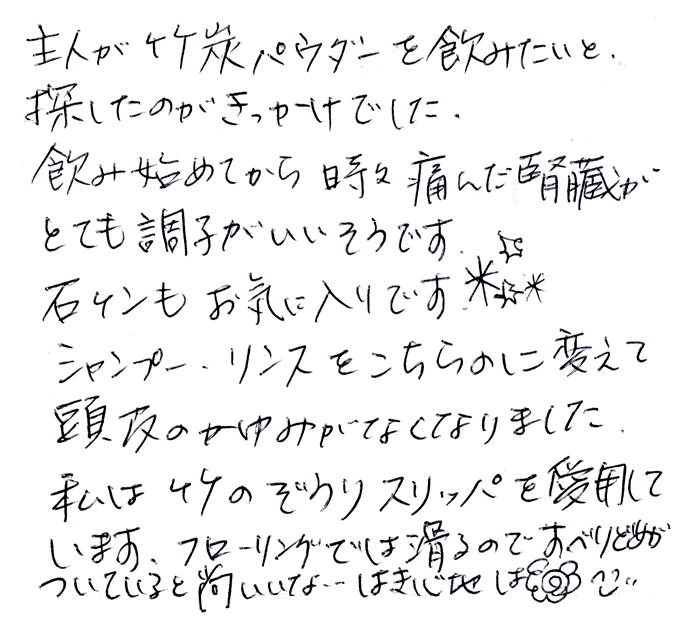 主人が竹炭パウダーを飲みたいと、
探したのがきっかけでした。
飲み始めてから時々痛んだ腎臓が
とても調子がいいそうです。
石ケンもお気に入りです
シャンプー、リンスをこちらのに変えて
頭皮のかゆみがなくなりました。
私は竹のぞうりスリッパを愛用して
います。フローリングでは滑るのですべりどめが
ついていると尚いいな… はき心地は